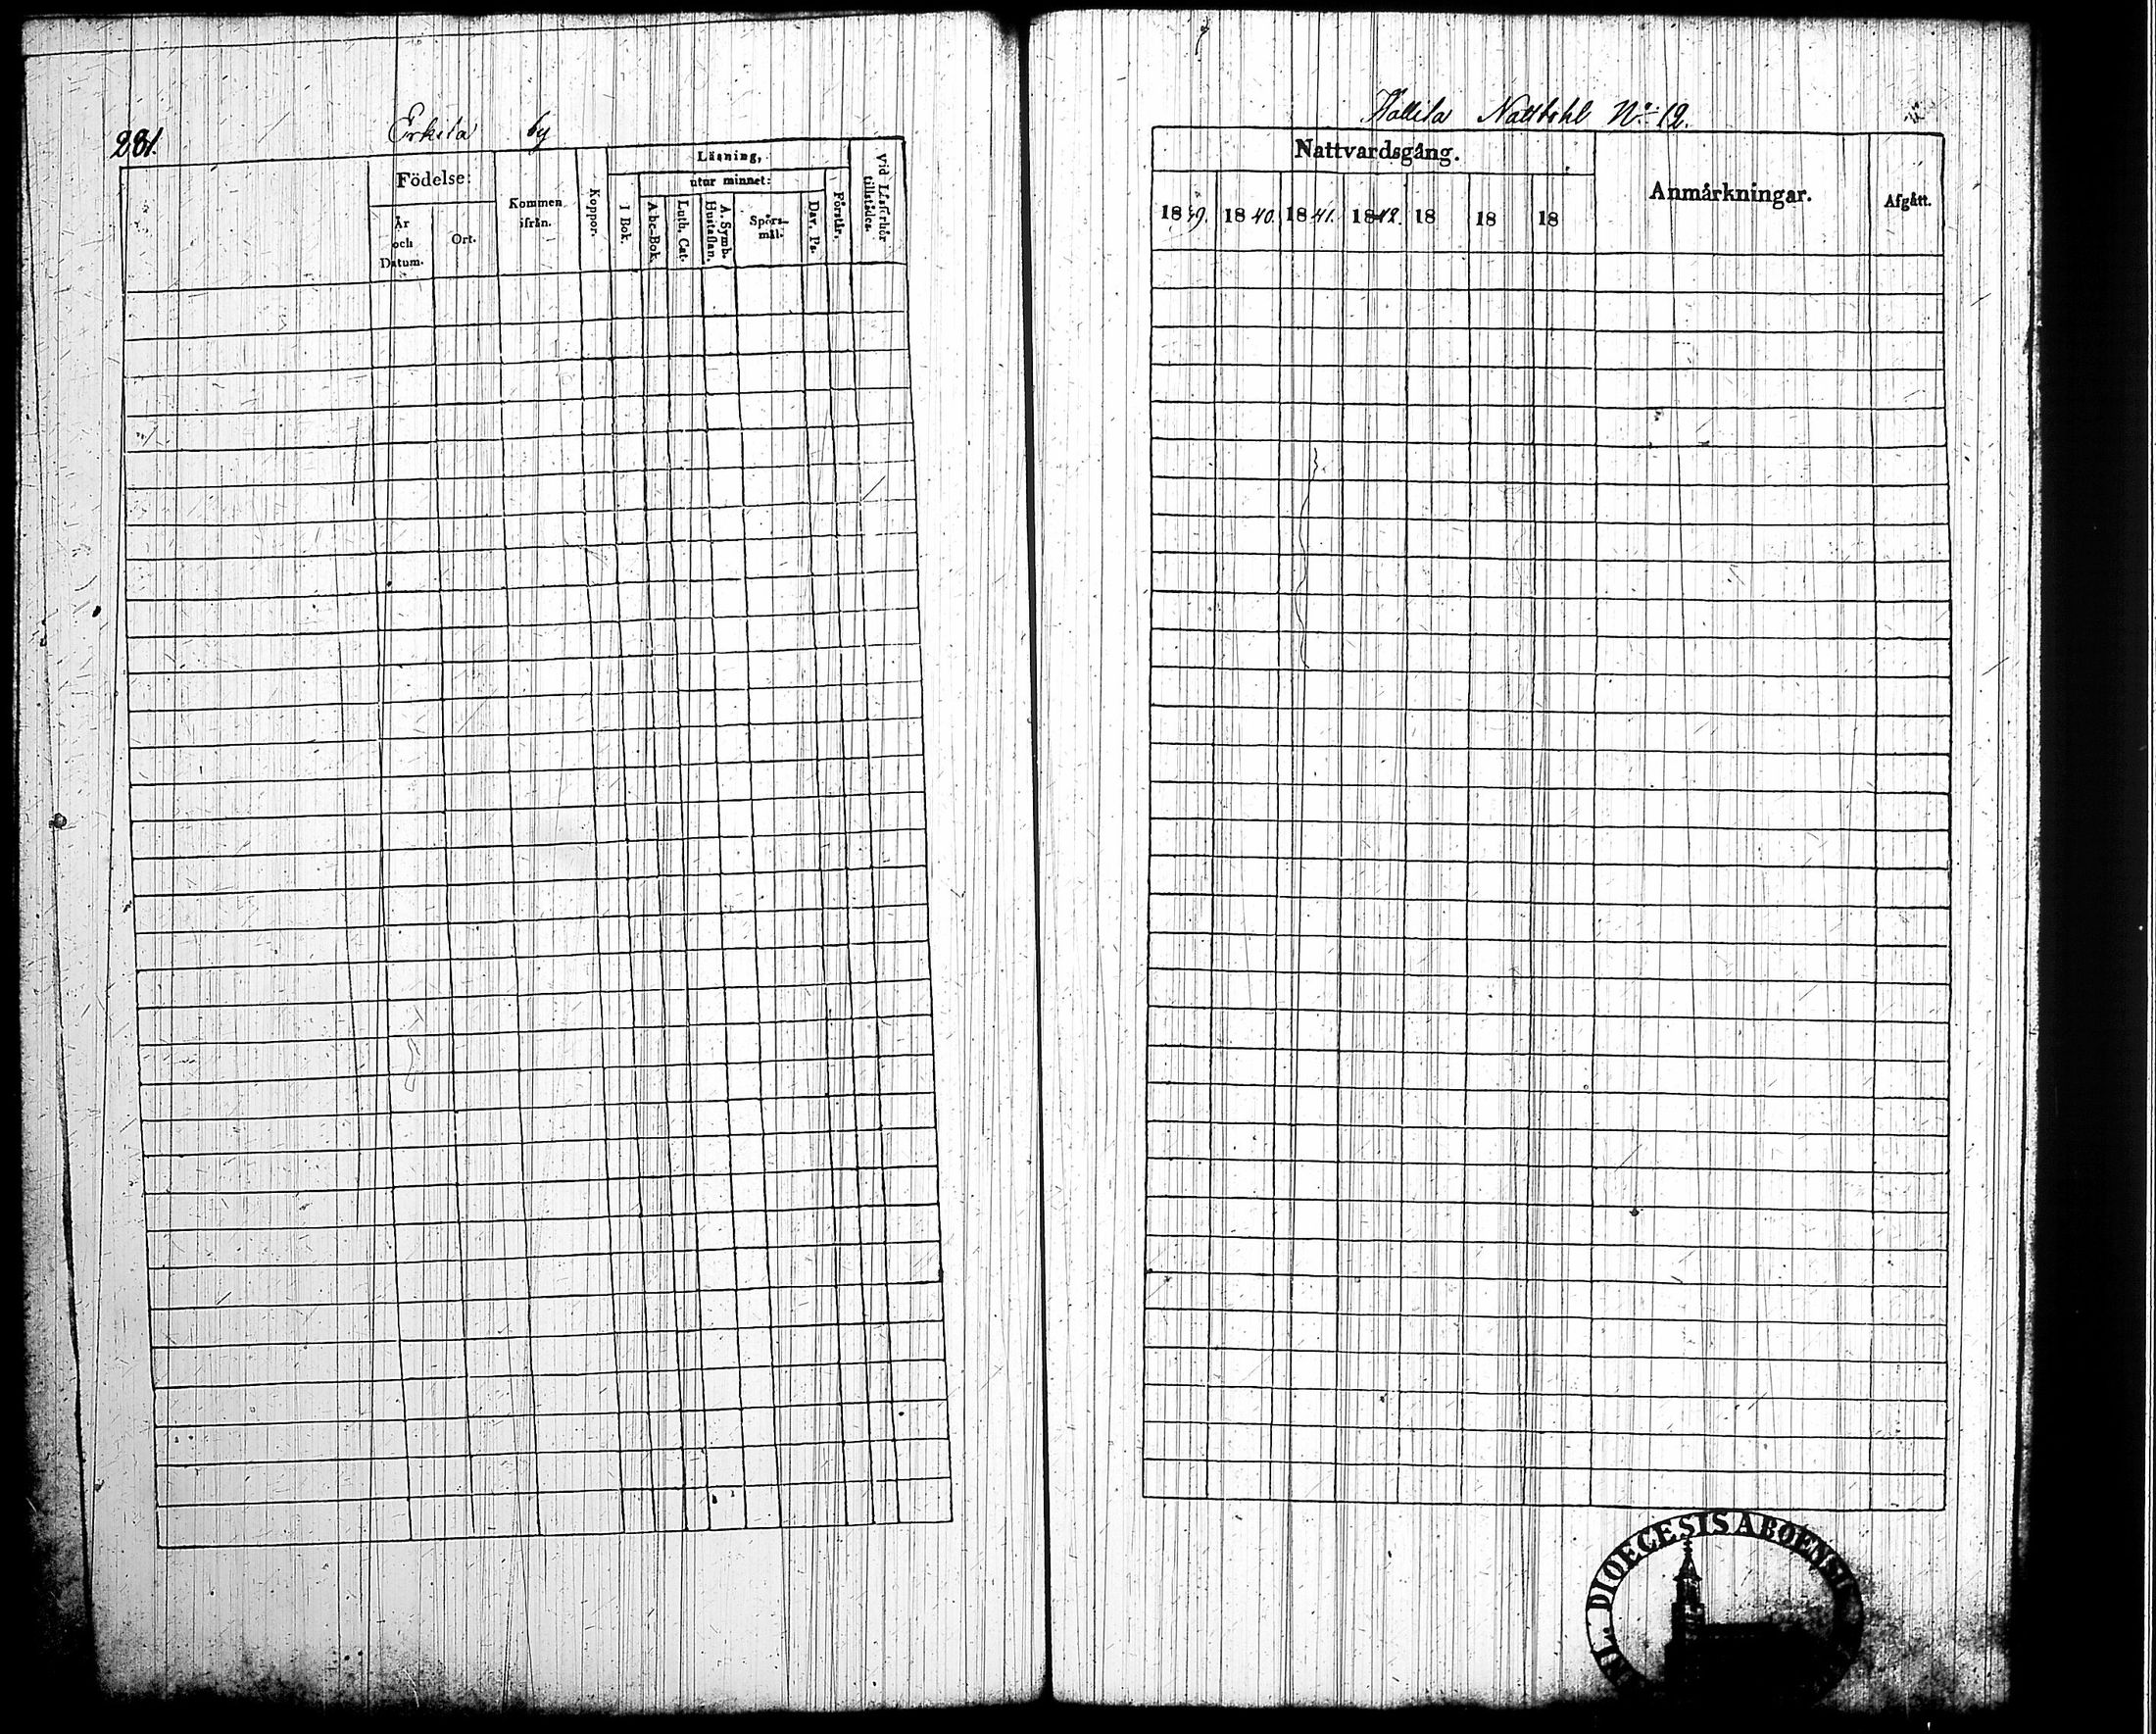 281.
Erkila by
Födelse:
År och Datum.
Ort.
Kommen ifrån.
Koppor.
Läsning,
utur minnet:
I Bok.
Abc-Bok.
Luth. Cat.
A. Symb. Hustaflan.
Spörsmål.
Dav. Ps.
Förstår.
Vid Läsförhör tillstädes.
Hallila Nattbohl No. 12.
Nattvardsgång.
1839. 1840. 1841. 1842. 18 18 18
Anmårkningar.
Afgått.
DIOECESIS ABOENSI